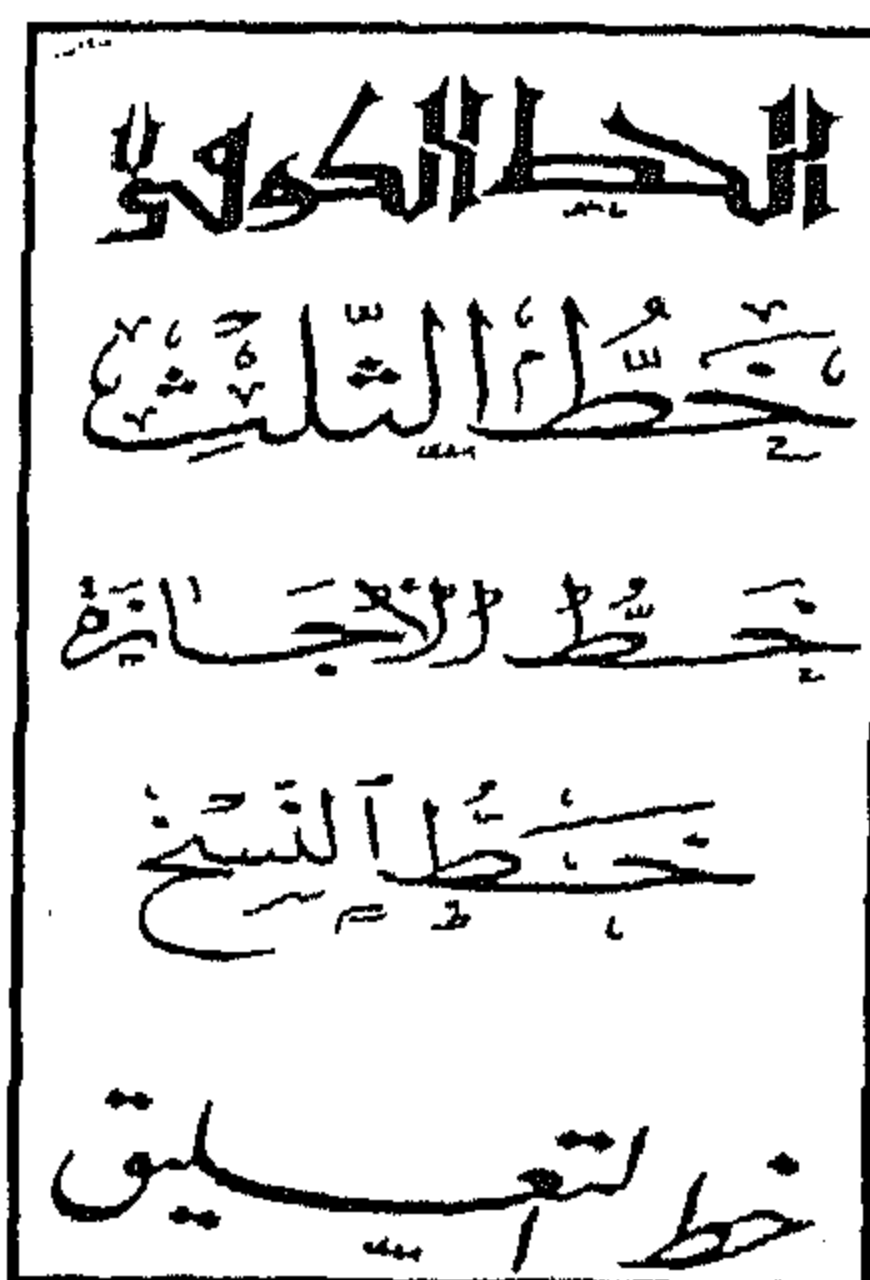 الخط الكوفي
خَطُّ الثُّلُثِ
خَطُّ الْإِجَازَةِ
خَطُّ النَّسْخِ
خط التعليق